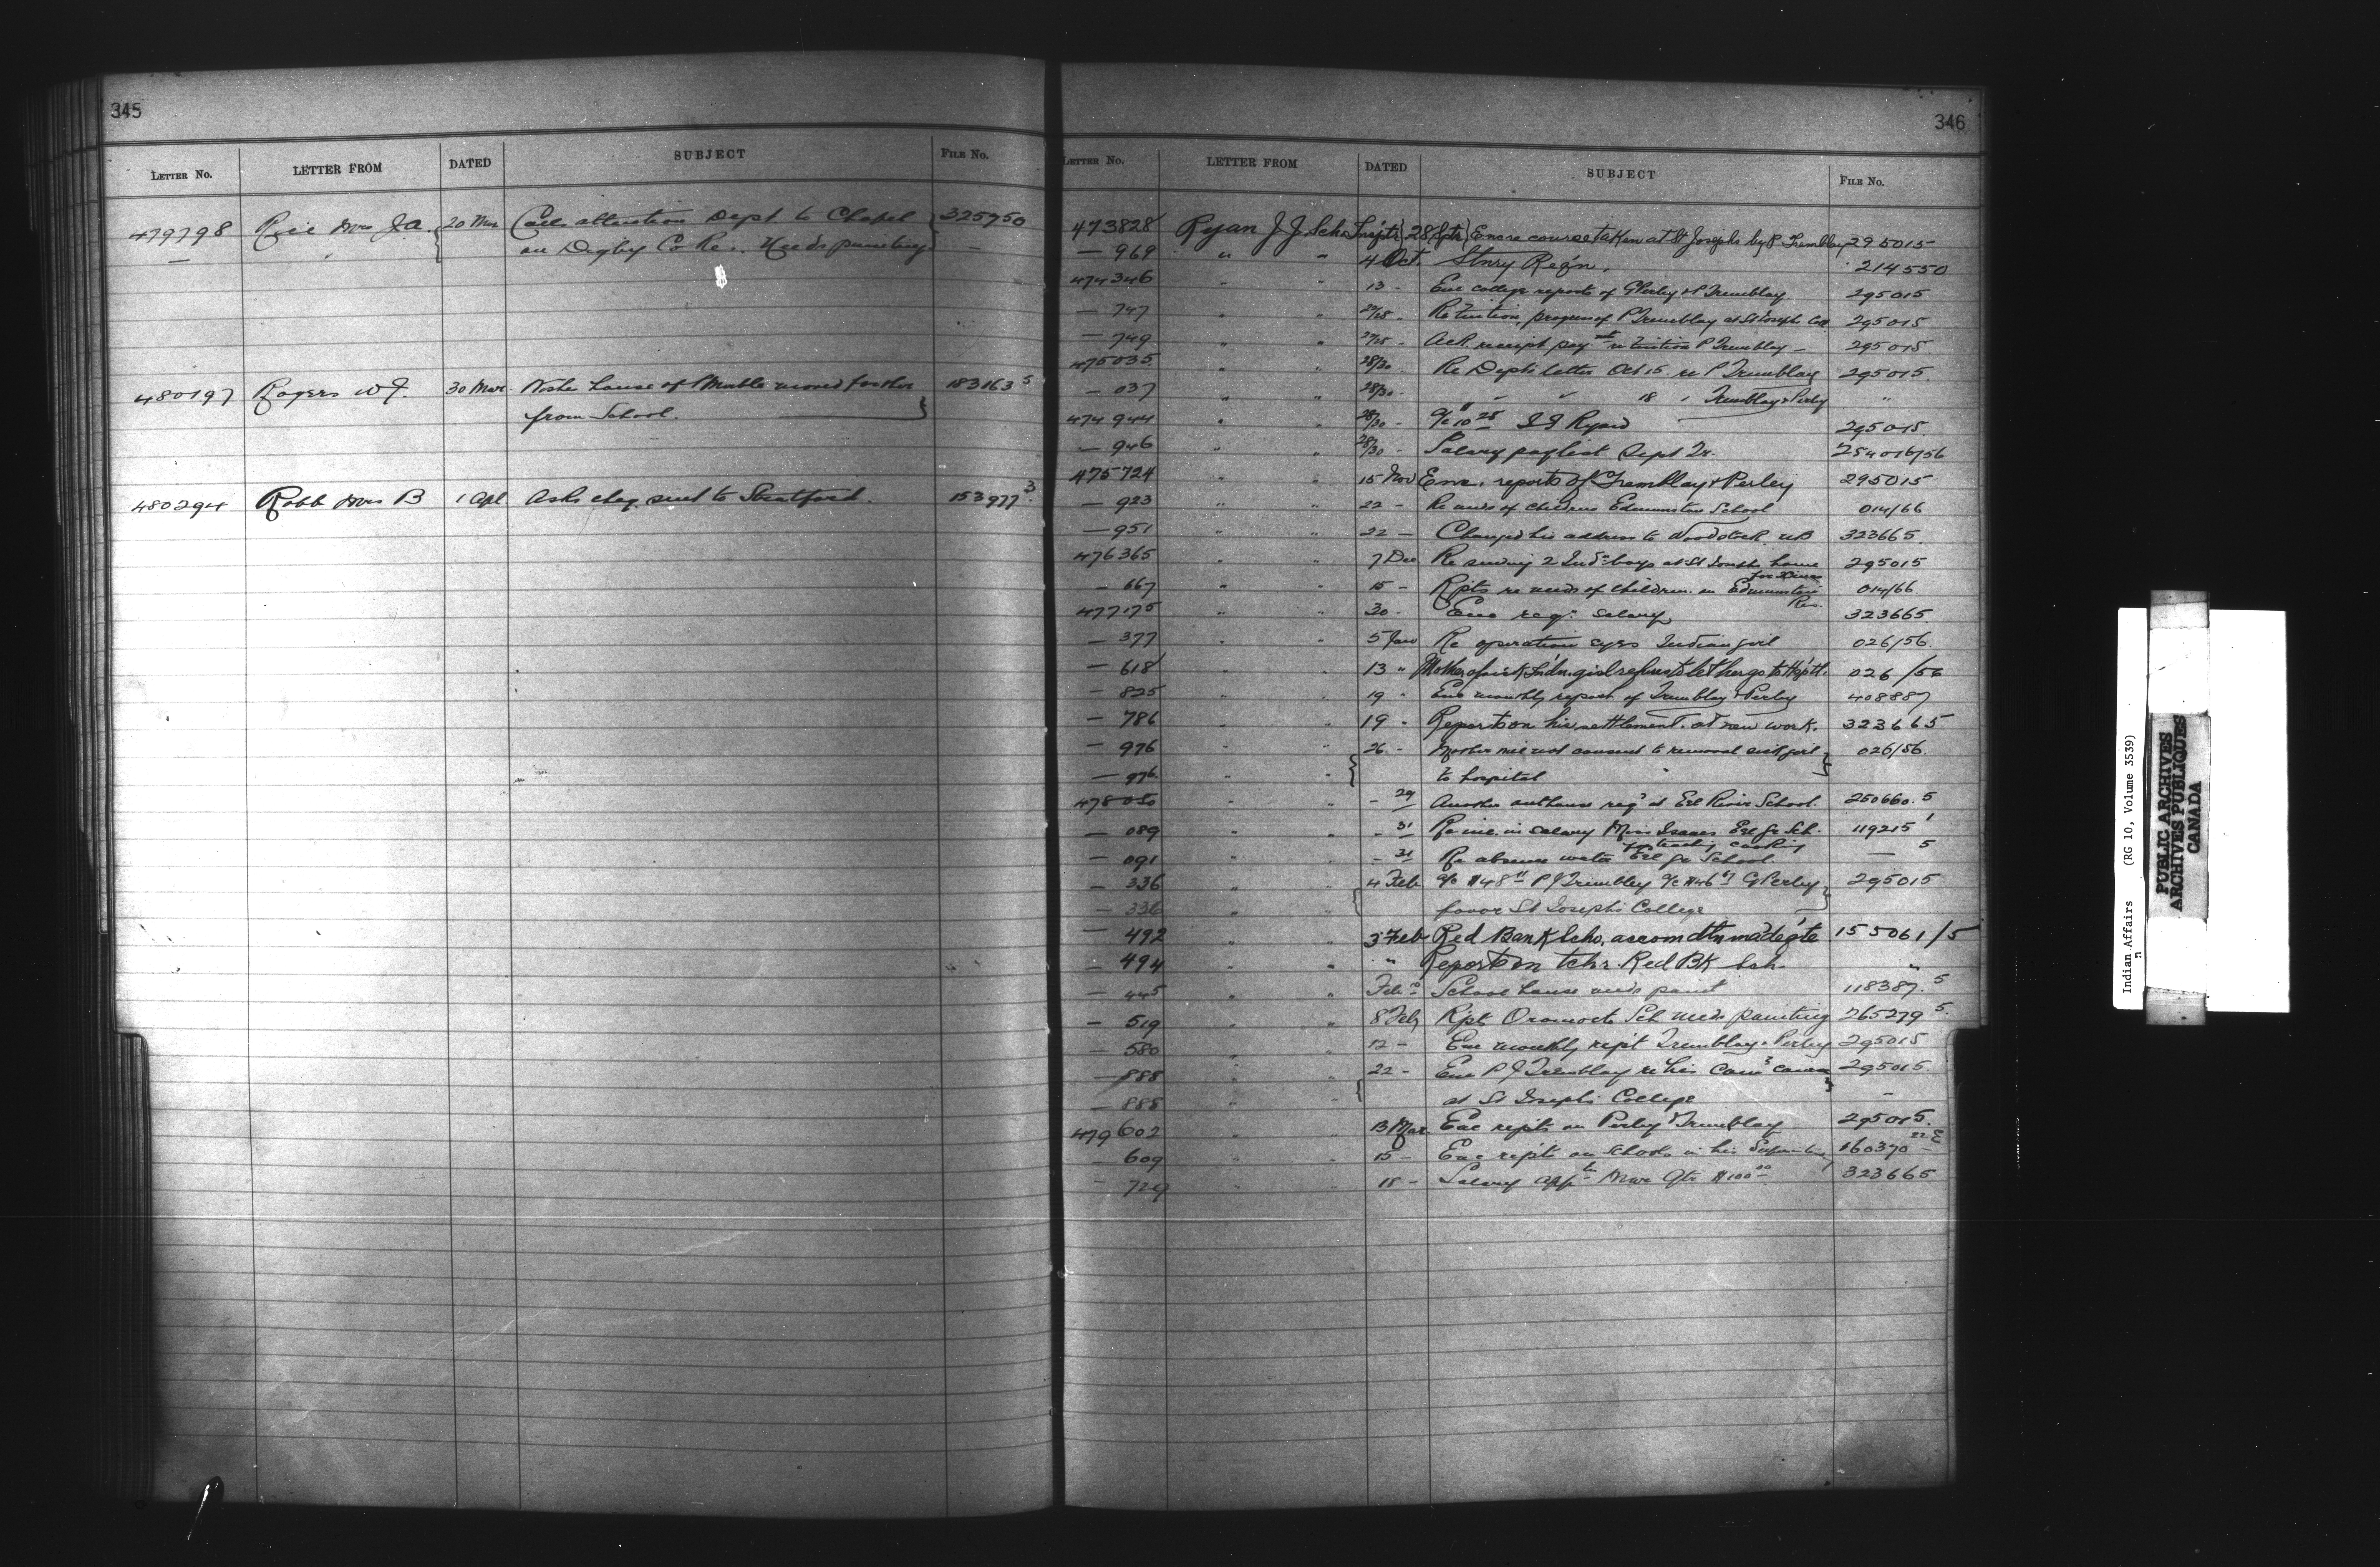 345
LETTER NO. LETTER FROM DATED SUBJECT FILE NO.
479798 Rice Mrs J.A. 20 Mar Calls attention Dept to Chapel 325950
— on Digby Co Re. Needs painting —
480197 Rogers W J. 30 Mar house of moved further 183163 5
from School.
480294 Robb Mrs B 1 Apl Asks chq. sent to Stratford. 153977 3
346
LETTER NO. LETTER FROM DATED SUBJECT FILE NO.
473828 Ryan J. J. Sch. Insptr 28 Sptr Enc re course taken at St Josephs by P Tremblay 295015
— 969 " " 4 Oct. Stnry Req'n. 214550
474346 " " 13 - Enc college reports of G Perley & P Tremblay 295015
— 747 " " Re tuition, progress of P Tremblay at St Josephs Coll 295015
— 749 " " Ack. receipt paymt re tuition P Tremblay — 295015
475035 " " 28/30 Re Depts letter Oct 15 re P Tremblay 295015
— 037 " " 28/30 - " " 18 " Tremblay & Perley "
474944 " " 28/30 - a/c 10 25 J J Ryan 295015
— 946 " " 28/30 - Salary paylist Sept Qr. 254016/56
475724 " " 15 Nov Enc. reports of Tremblay & Perley 295015
— 923 " " 22 - Re needs of children Edmunston School 014/66
— 951 " " 22 — Changed his address to Woodstock NB 323665
476365 " " 7 Dec Re sending 2 Ind. boys at St Josephs home 295015
for Xmas
— 667 " " 15 - Rpts re needs of children on Edmunston 014/66
Res.
477175 " " 30 - Enc req. salary 323665
— 377 " " 5 Jan Re operation eyes Indian girl 026/56
— 618 " " 13 " Mother of sick Indn. girl refuses to let her go to Hsp'tl. 026/56
— 825 " " 19 " Enc monthly report of Tremblay & Perley 408887
— 786 " " 19 - Reports on his settlement at new work. 323665
— 976 " " 26 - Mother will not consent to removal sick girl 026/56
— 976 " " to hospital
478050 " " - 29 Another outhouse reqd at Eel River School. 250660.5
— 089 " " - 31 Re inc. in salary Miss Isaacs Eel Gr Sch. 119215 1
— 091 " " - 31 Re absence water Eel Gr School — 5
— 336 " " 4 Feb a/c P J Tremblay a/c G Perley 295015
— 336 " " favor St Josephs College
— 492 " " 3 Feb Red Bank Scho. accomdtn madeq'te 155061/5
— 494 " " " Reports on tchr. Red Bk Sch. "
— 445 " " Feb School house needs paint 118387.5
— 519 " " 8 Feb Rpt Oromocto Sch needs painting 265279 5
— 580 " " 12 - Enc monthly rep't Tremblay & Perley 295015
— 888 " " 22 - Enc P J Tremblay re his course 295015
— 888 " " at St Josephs College —
479602 " " 13 Mar. Enc repts on Perley & Tremblay 295015
— 609 " " 15 - Enc repts on schools in his 160370
— 729 " " 18 - Salary Mar Qtr $100 00 323665
Indian Affairs (RG 10, Volume 3539)
PUBLIC ARCHIVES
ARCHIVES PUBLIQUES
CANADA